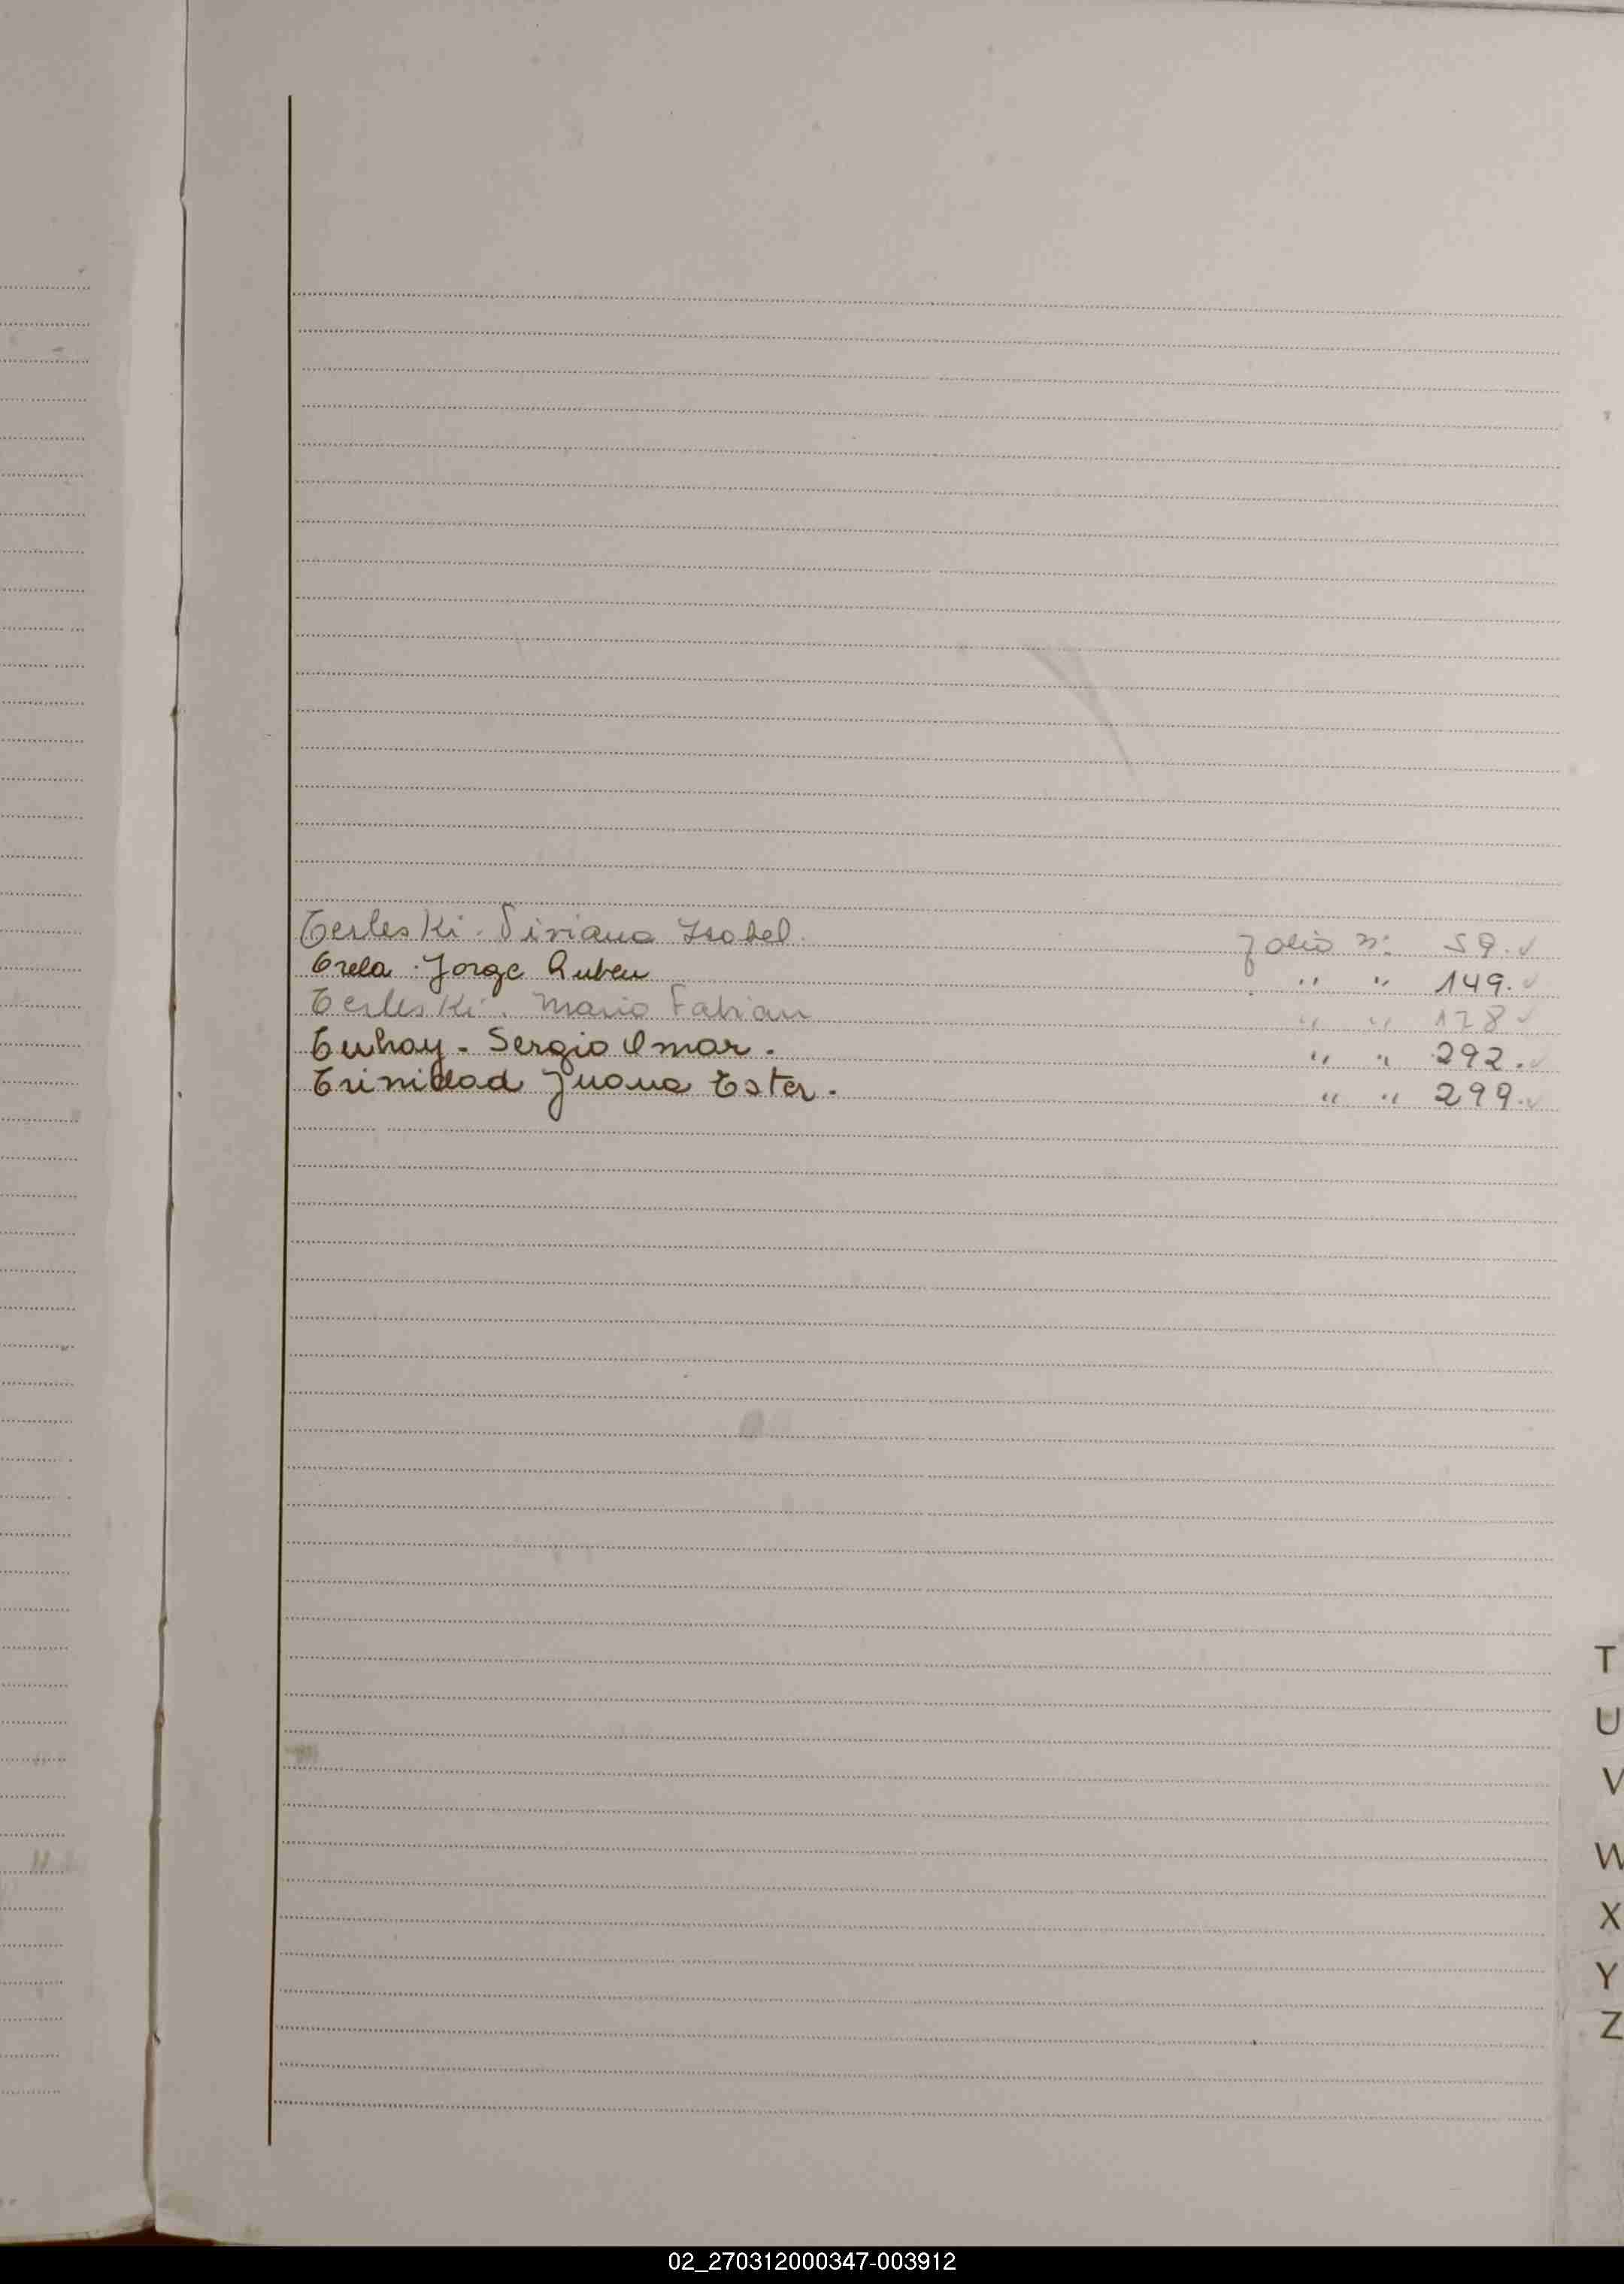 Terleski. Viviana Isabel. Folio n: 59.
Trela. Jorge Ruben " " 149.
Terleski. Mario Fabian " " 178
Tuhay - Sergio Omar. " " 292.
Trinidad Juana Ester. " " 299.
T
U
V
W
X
Y
Z
02_270312000347-003912